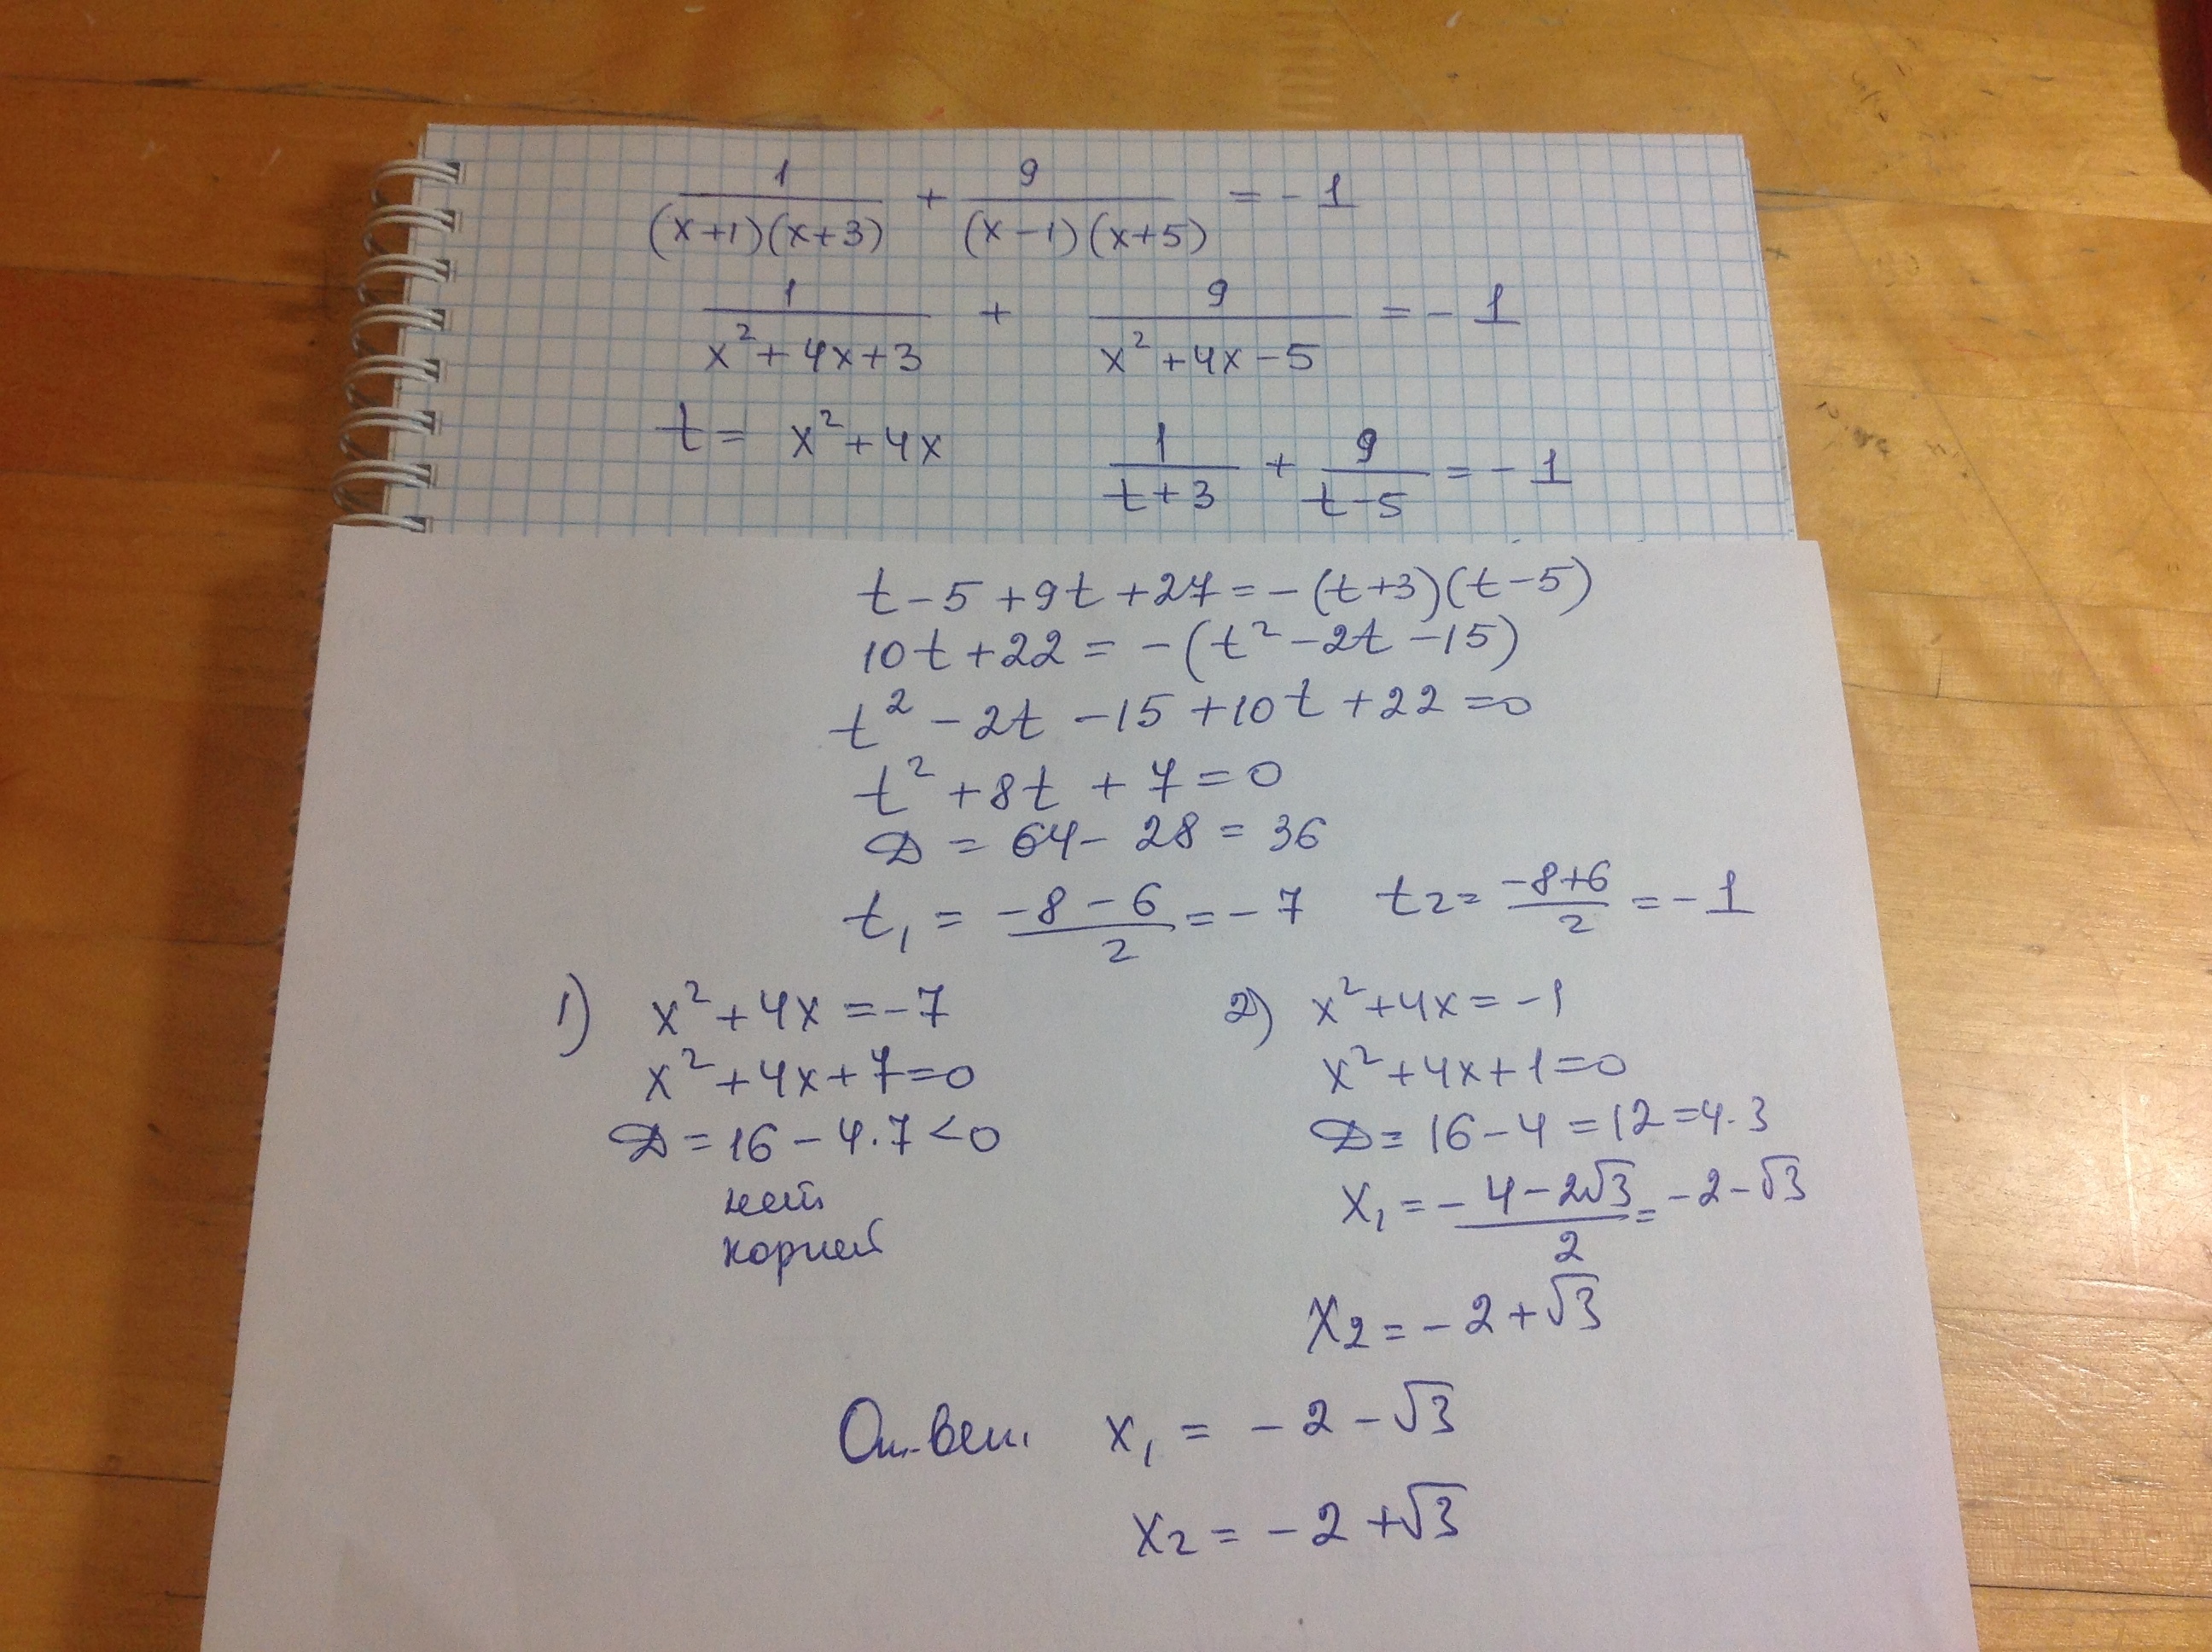 1/((x+1)(x+3)) + 9/((x-1)(x+5)) = -1
1/(x²+4x+3) + 9/(x²+4x-5) = -1
t = x²+4x 1/(t+3) + 9/(t-5) = -1
t-5+9t+27=-(t+3)(t-5)
10t+22=-(t²-2t-15)
t²-2t-15+10t+22=0
t²+8t+7=0
D=64-28=36
t₁=(-8-6)/2=-7 t₂=(-8+6)/2=-1
1) x²+4x=-7
x²+4x+7=0
D=16-4·7<0
нет
корней
2) x²+4x=-1
x²+4x+1=0
D=16-4=12=4·3
x₁=-(4-2√3)/2=-2-√3
x₂=-2+√3
Ответ. x₁=-2-√3
x₂=-2+√3